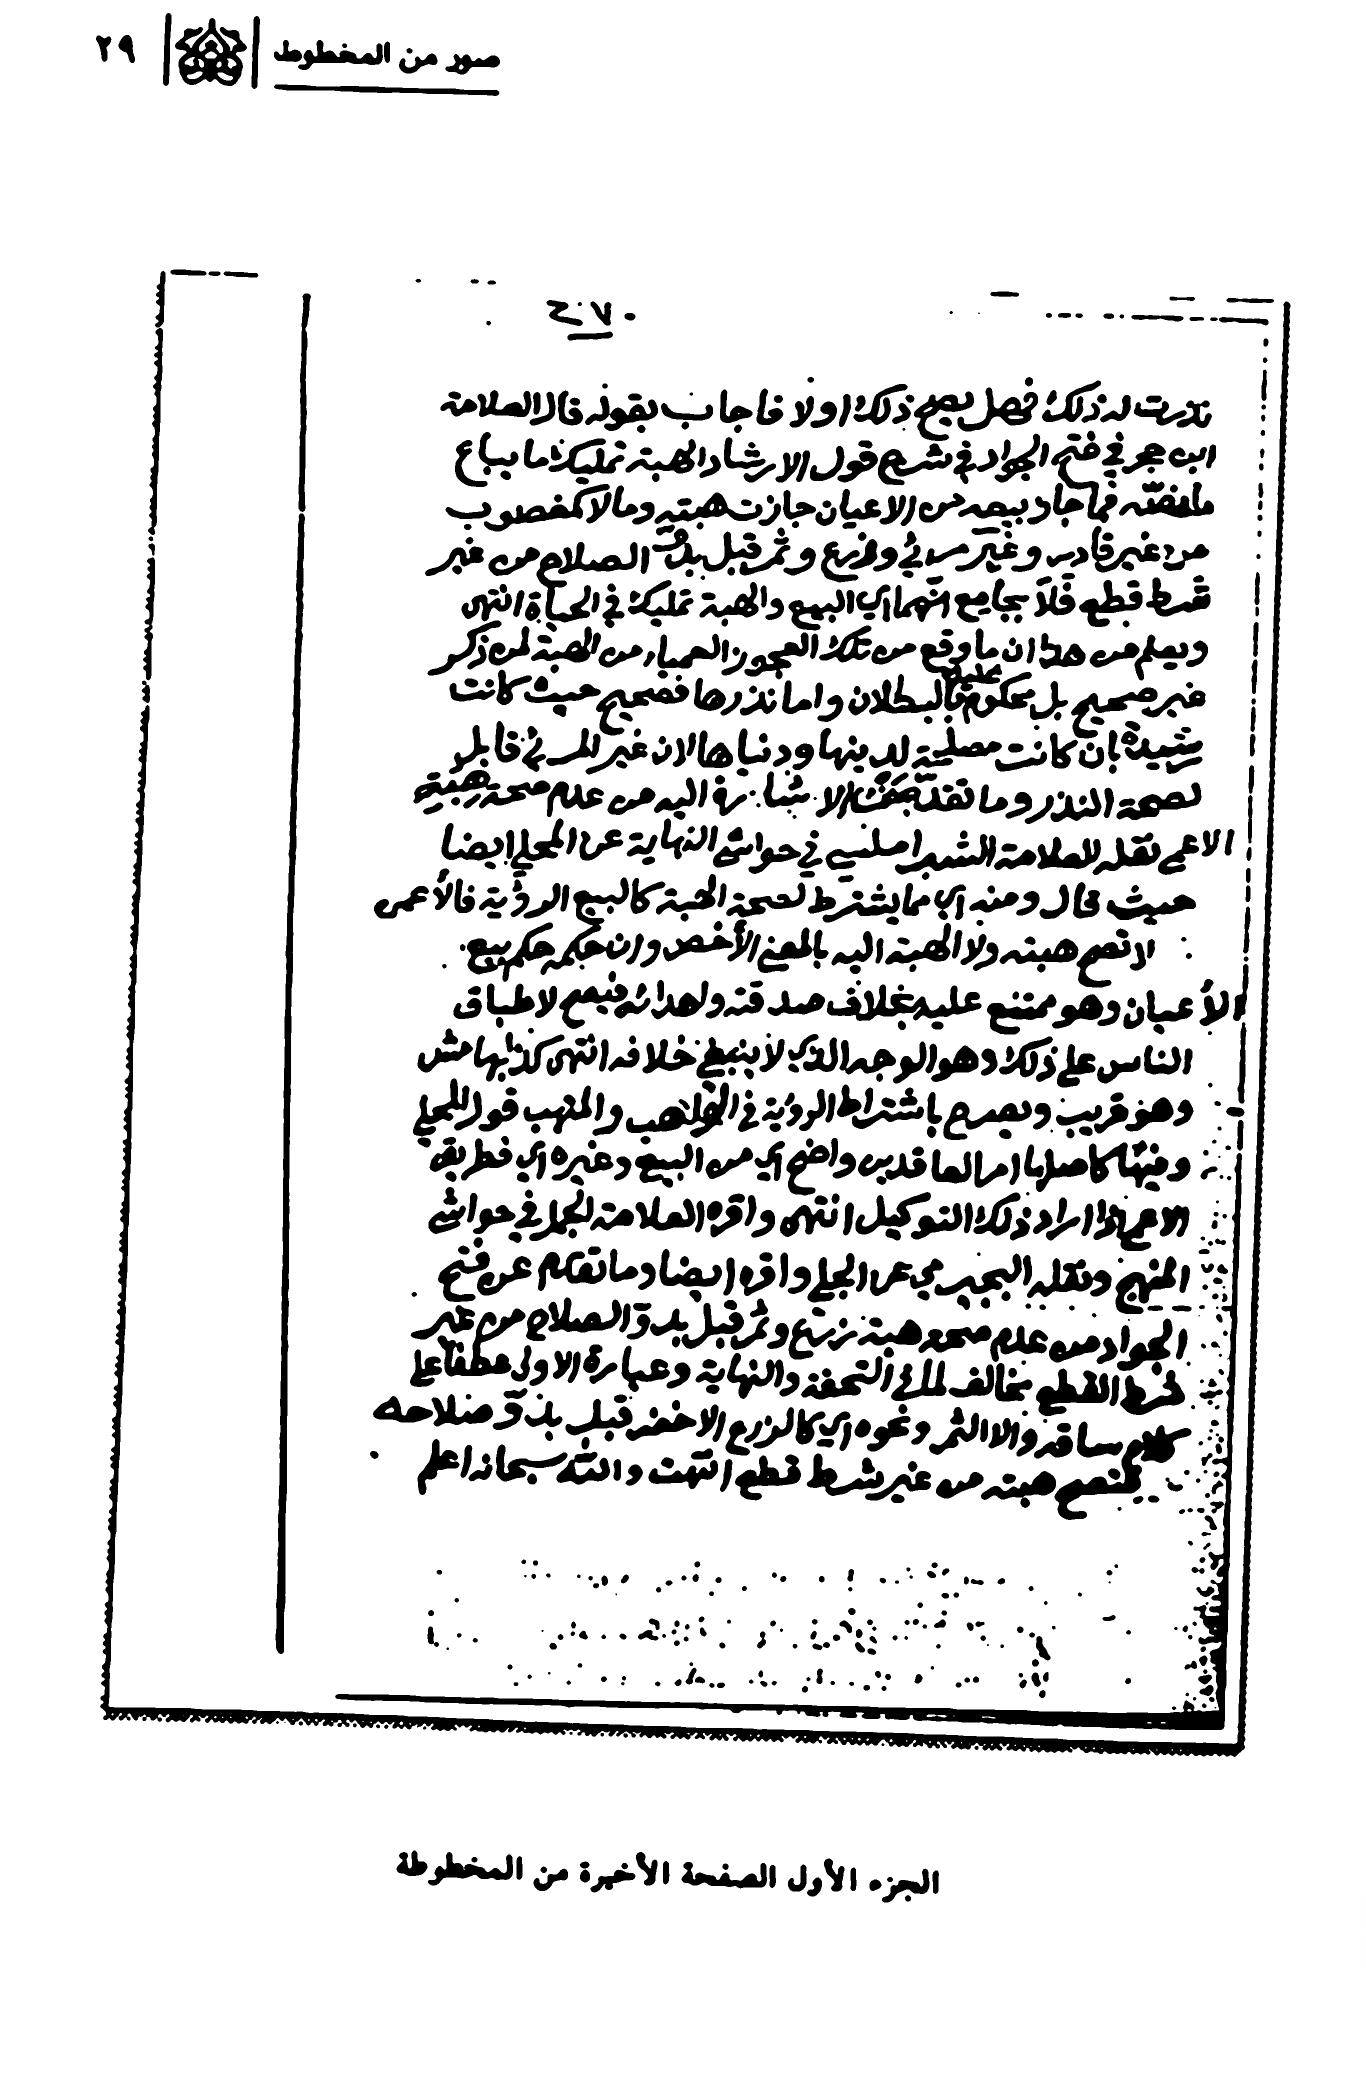 صور من المخطوط
٢٩
نذرت له ذلك فهل يصح ذلك اولا فاجاب بقوله قال العلامة
ابن حجر في فتح الجواد في شرح قول الارشاد الهبة تمليك ما يباع
ما نصه فما جاز بيعه من الاعيان جازت هبته وما لا كمغصوب
من غير قادر وغير مرئي وزرع وثمر قبل بدو الصلاح من غير
شرط قطع فلا بجامع انهما اي البيع والهبة تمليك في الحياة انتهى
ويعلم من هذا ان ما وقع من تلك العجوز العمياء من الهبة لمن ذكر
غير صحيح بل محكوم عليه بالبطلان واما نذرها فصحيح حيث كانت
رشيدة بان كانت مصلحة لدينها ودنياها لان غير المرئي قابل
لصحة النذر وما تقدمت الاشارة اليه من عدم صحة هبة
الاعمى نقله العلامة الشبراملسي في حواشي النهاية عن المحلي ايضا
حيث قال ومنه اي مما يشترط لصحة الهبة كالبيع الرؤية فالأعمى
لا تصح هبته ولا الهبة اليه بالمعنى الأخص وان حكمه حكم بيع
الأعيان وهو ممتنع عليه بخلاف صدقته ولهدائه فيصح لاطباق
الناس على ذلك وهو الوجه الذي لا ينبغي خلافه انتهى كذا بهامش
وهو قريب ويصرح باشتراط الرؤية في الواهب والمتهب قول المحلي
وفيهما كاصلها امر العاقدين واضح اي من البيع وغيره اي فطريق
الاعمى اذا اراد ذلك التوكيل انتهى واقره العلامة الجمل في حواشي
المنهج ونقله البجيرمي عن المحلي واقره ايضا وما تقدم عن فتح
الجواد من عدم صحة هبة زرع وثمر قبل بدو الصلاح من غير
شرط القطع مخالف لما في التحفة والنهاية وعبارة الاولى عطفا على
كلام ساقه والا الثمر ونحوه اي كالزرع الاخضر قبل بدو صلاحه
فتصح هبته من غير شرط قطع انتهت والله سبحانه اعلم
الجزء الأول الصفحة الأخيرة من المخطوطة